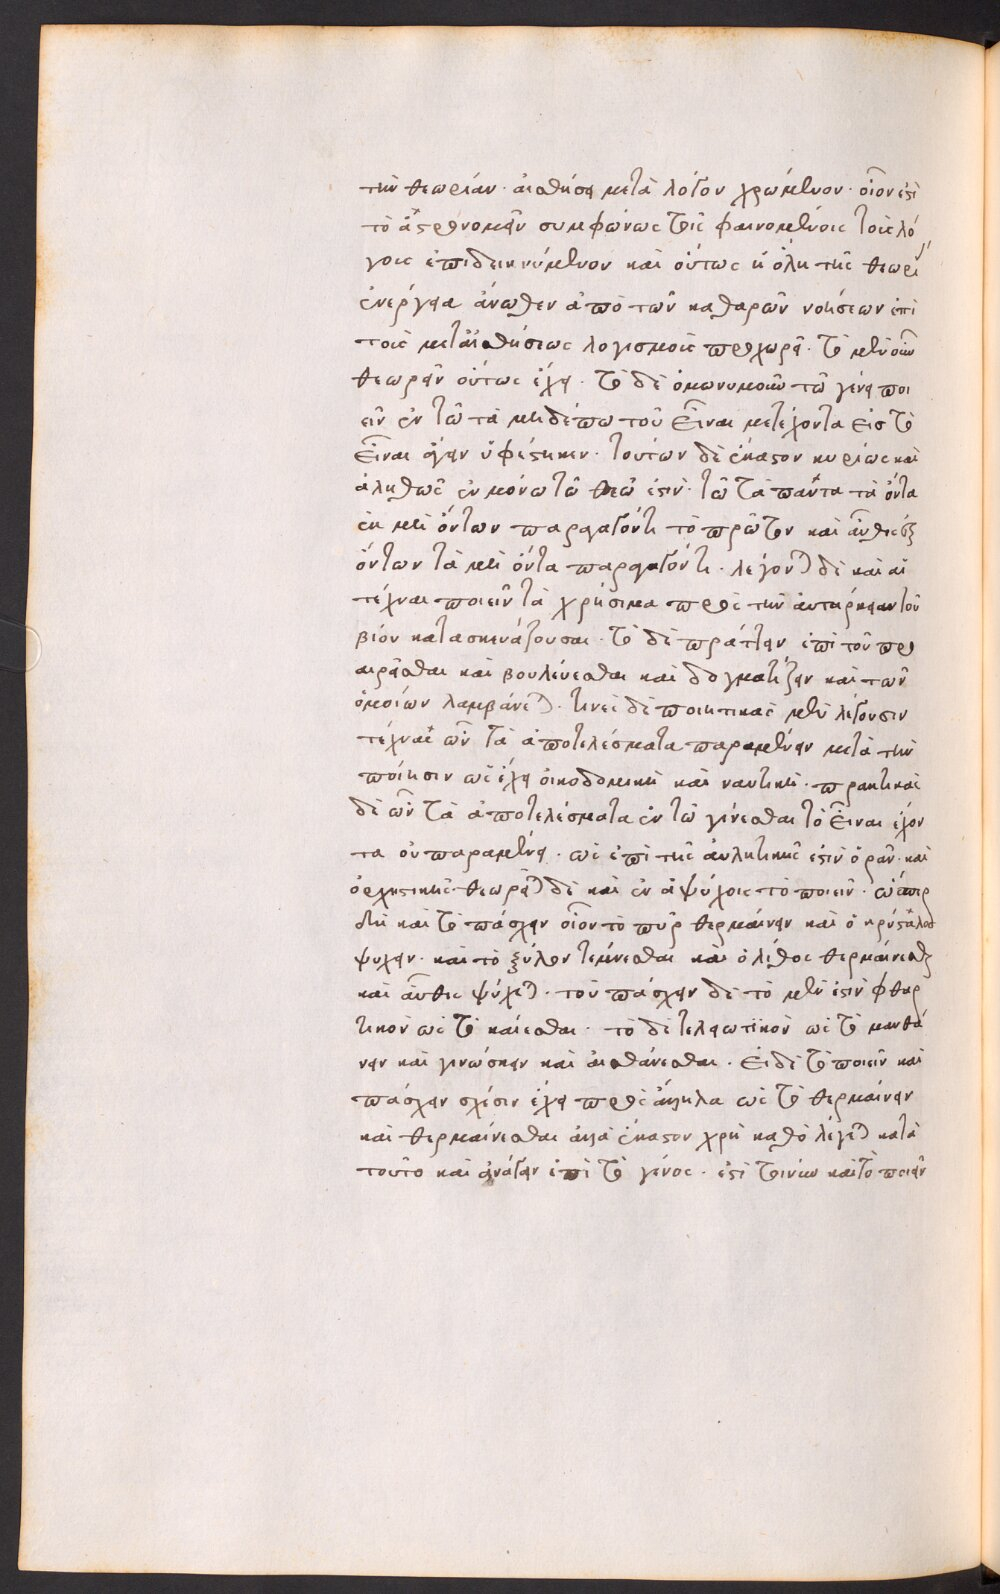 τὴν θεωρίαν· αἰσθήσει μετὰ λόγου χρώμενον· οἷον ἐστὶ
τὸ ἀστρονομεῖν συμφώνως τοῖς φαινομένοις τοῖς λό
γοις ἐπιδεικνύμενον καὶ οὕτως ἡ ὅλη τῆς θεωρί
ἐνέργεια ἄνωθεν ἀπὸ τῶν καθαρῶν νοήσεων ἐπὶ
τοῖς μετ' αἰσθήσεως λογισμοῖς προχωρεῖ· τὸ μὲν οὖν
θεωρεῖν οὕτως ἔχει· τὸ δὲ ὁμωνυμοῦν τῷ γένει ποι
εῖν ἐν τῷ τὰ μηδέπω τοῦ εἶναι μετέχοντα εἰς τὸ
εἶναι ἄγειν ὑφέστηκεν· τούτων δὲ ἕκαστον κυρίως καὶ
ἀληθῶς ἐν μόνῳ τῷ θεῷ ἐστὶν· τῷ τὰ πάντα τὰ ὄντα
ἐκ μὴ ὄντων παραγαγόντι τὸ πρῶτον καὶ αὖθις ἐξ
ὄντων τὰ μὴ ὄντα παραγαγόντι· λέγονται δὲ καὶ αἱ
τέχναι ποιεῖν τὰ χρήσιμα πρὸς τὴν αὐτάρκειαν τοῦ
βίου κατασκευάζουσαι· τὸ δὲ πράττειν ἐπὶ τοῦ προ
αιρεῖσθαι καὶ βουλεύεσθαι καὶ δογματίζειν καὶ τῶν
ὁμοίων λαμβάνεται· τινὲς δὲ ποιητικὰς μὲν λέγουσιν
τέχνας ὧν τὰ ἀποτελέσματα παραμένειν μετὰ τὴν
ποίησιν ὡς ἔχει οἰκοδομικὴ καὶ ναυτικὴ· πρακτικὰς
δὲ ὧν τὰ ἀποτελέσματα ἐν τῷ γίνεσθαι τὸ εἶναι ἔχον
τα οὐ παραμένει· ὡς ἐπὶ τῆς αὐλητικῆς ἐστὶν ὁρᾶν· καὶ
ὀρχηστικῆς· θεωρεῖται δὲ καὶ ἐν ἀψύχοις τὸ ποιεῖν· ὥσπερ
δὴ καὶ τὸ πάσχειν οἷον τὸ πῦρ θερμαίνειν καὶ ὁ κρύσταλλος
ψύχειν· καὶ τὸ ξύλον τέμνεσθαι καὶ ὁ λίθος θερμαίνεσθαι
καὶ αὖθις ψύχεται· τοῦ πάσχειν δὲ τὸ μὲν ἐστὶν φθαρ
τικὸν ὡς τὸ καίεσθαι· τὸ δὲ τελειωτικὸν ὡς τὸ μανθά
νειν καὶ γινώσκειν καὶ αἰσθάνεσθαι· εἰ δὲ τὸ ποιεῖν καὶ
πάσχειν σχέσιν ἔχει πρὸς ἄλληλα ὡς τὸ θερμαίνειν
καὶ θερμαίνεσθαι ἀλλὰ ἕκαστον χρὴ καθὸ λέγεται κατὰ
τοῦτο καὶ ἀνάγειν ἐπὶ τὸ γένος· ἐστὶ τοίνυν καὶ τὸ ποιεῖν